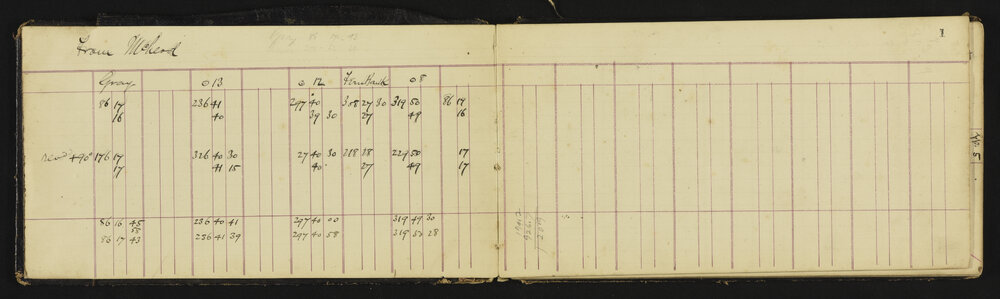 From McLeod
1
Gray 013 012 08
86 17 236 41 297 40 308 27 30 319 50 86 17
16 40 39 30 27 49 16
+90° 176 17 326 40 30 27 40 30 218 28 229 50 17
17 41 15 40 27 49 17
86 16 45 236 40 41 297 40 00 319 49 30
86 17 43 236 41 39 297 40 58 319 50 28
No. 5